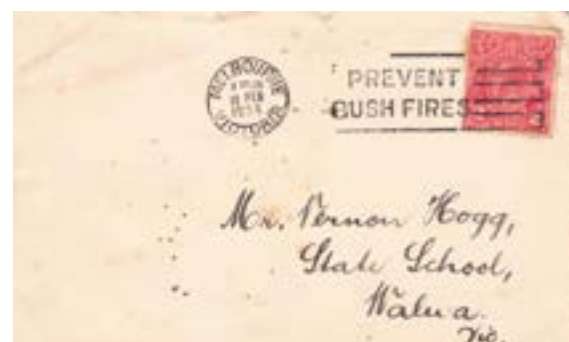 MELBOURNE
FEB
VICTORIA
PREVENT
BUSH FIRES
Mr. Vernon Hogg,
State School,
Walwa.
Vic.